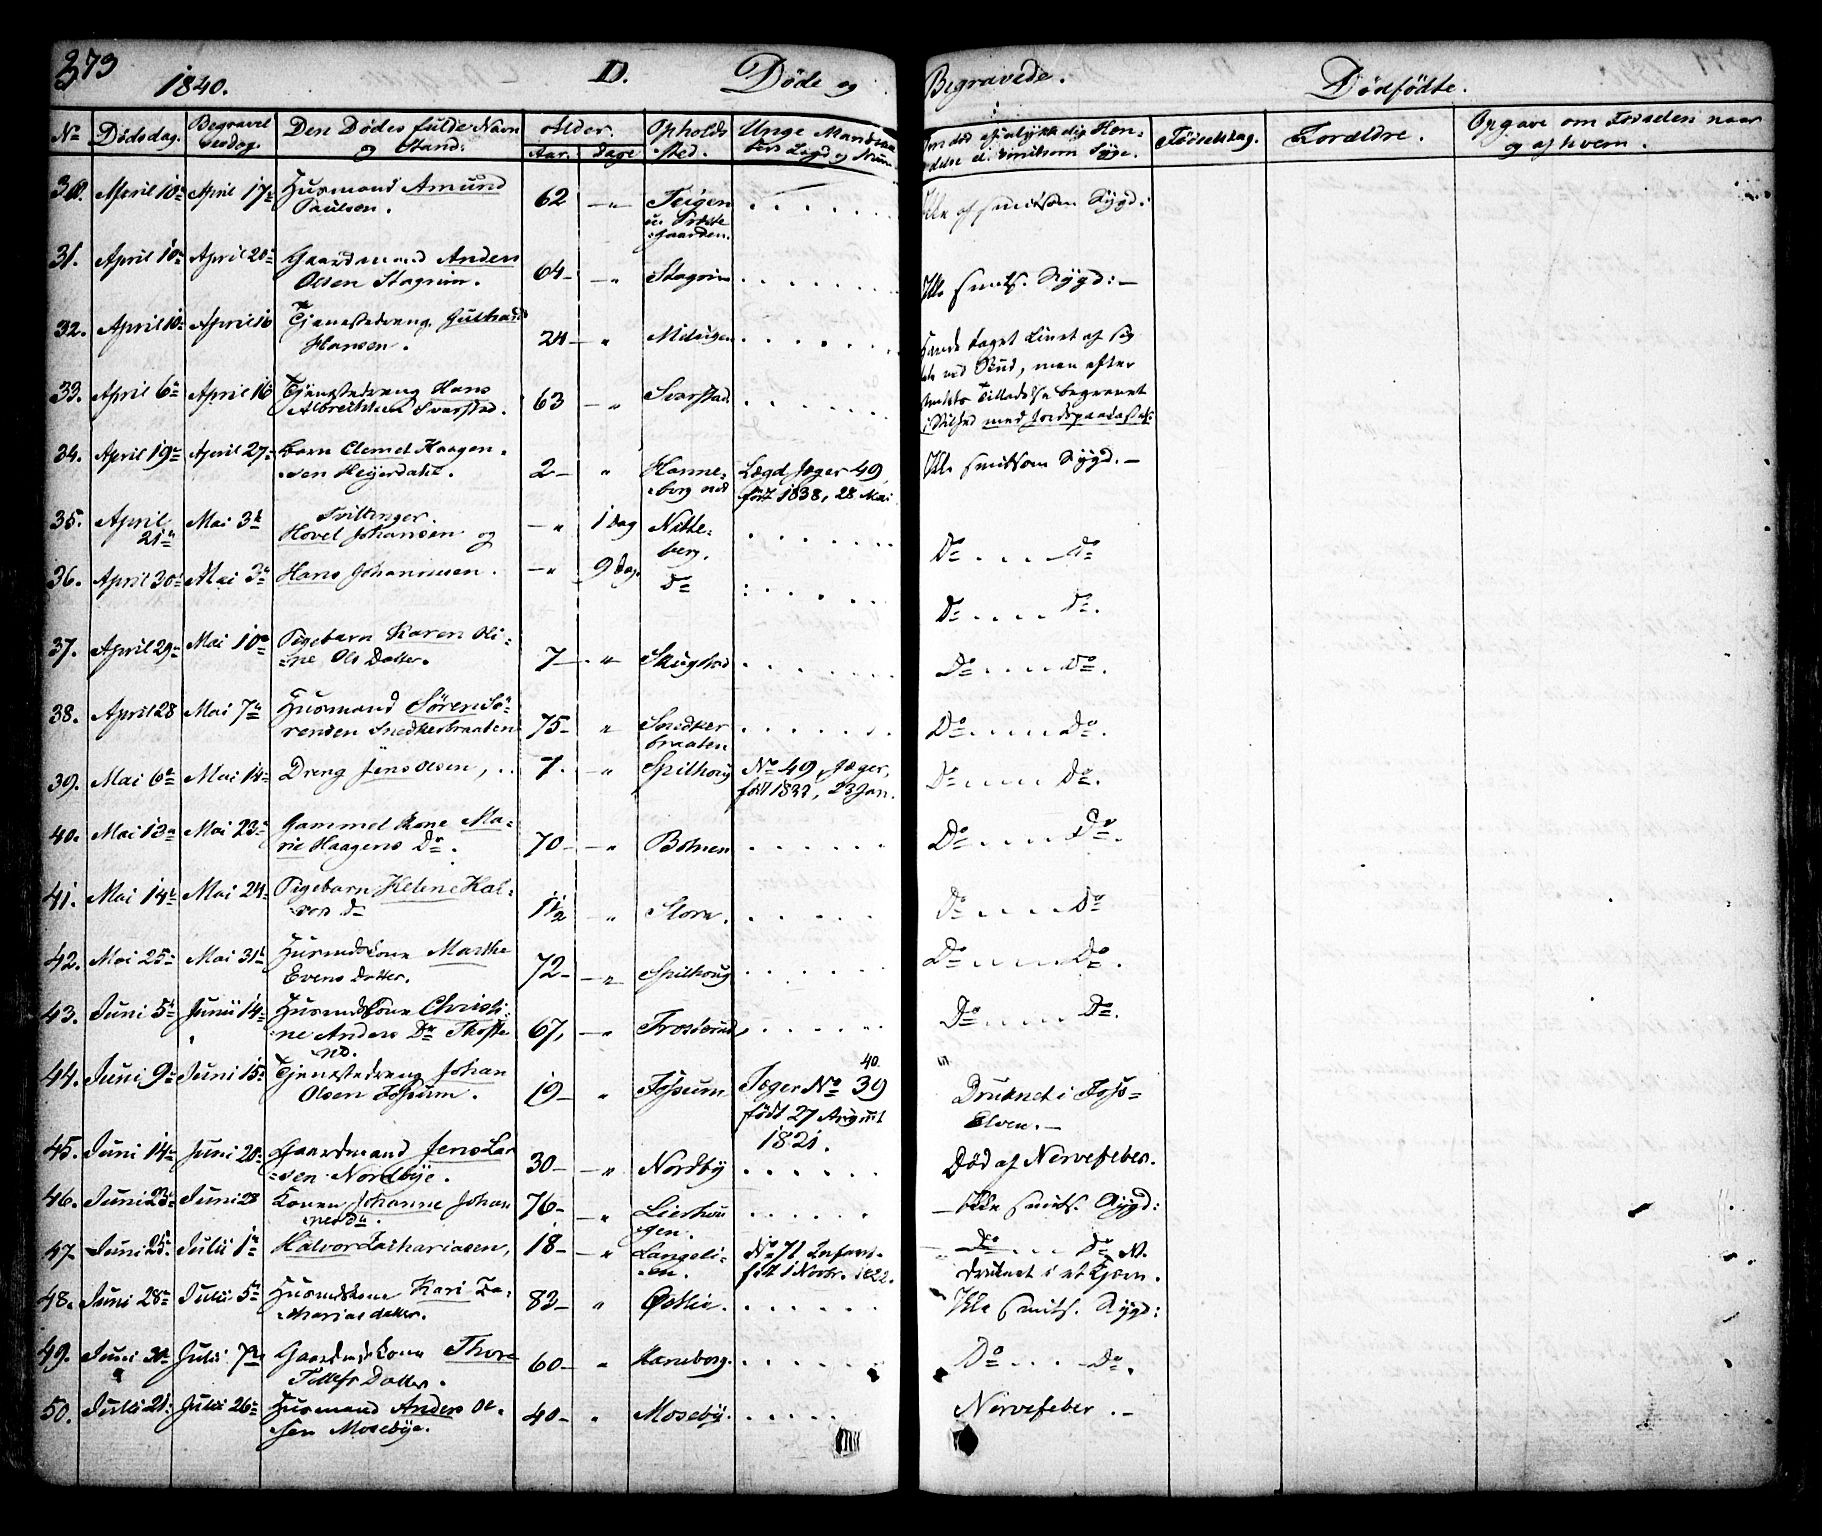 373
1840. D. Døde og Begravede. Dødfødte.
No Dødsdag. Begravelsesdag. Den Dødes fulde Navn og Stand. Alder. Aar. Dage Opholdssted. Unge Mandskabers Lægd og Num Fødselsdag. Forældre. Opgave om Årsaden naar og af hvem.
30. April 10de April 17de Huusmand Amund
Paulsen. 62 Teigen
u. Præste
gaarden. Ikke af smitsom Sygd:
31. April 10de April 20de Gaardmand Anders
Olsen Stagrim. 64 Stagrim Ikke smits. Sygd:
32. April 10de April 16 Tjenestedreng Gulbrand
Hansen. 24 Havde taget Livet af sig
33. April 6te April 16 Tjenestedreng Hans
Albrechtsen Svarstad. 63 Svarstad
34. April 19de April 27de Barn Clemet Haagen-
sen Heyerdahl. 2 Hanne-
borg Lægd Jæger 49,
født 1838, 28 Mai Ikke smitsom Sygd.
35. April
21de Mai 3die Tvillinger.
Hovel Johansen og 1 Dag Nitte-
berg. Do Do
36. April 30te Mai 3die Hans Johannesen. 9 Dag. Do Do Do.
37. April 29de Mai 10de Pigebarn Karen Oli-
ne Ols Datter. 7 Skugstad Do Do.
38. April 28 Mai 7de Huusmand Søren Sö-
rensen Snedkerbraaten 75 Snedker
braaten Do Do.
39. Mai 6te Mai 14de Dreng Jens Olsen, 7 Spilhoug No 49, Jæger,
født 1833, 23 Jan. Do Do.
40. Mai 13de Mai 23de Gammel Kone Ma-
rie Haagens Dr. 70 Bohnen Do Do.
41. Mai 14de Mai 24de Pigebarn Helene Hal-
vors Dr 1 1/2 Slora. Do Do
42. Mai 25de Mai 31te Huusmdskone Marthe
Evens Datter. 72 Spilhoug Do Do.
43. Juni 5te Junii 14de Huusmdskone Christi-
ne Anders Dr 67, Do Do.
44. Juni 9de Juni 15de Tjenestedreng Johan
Olsen Fossum. 19 Fossum Jæger No 39
40.
født 27 August
1821. Druknet i Foss-
Elven.
45. Juni 14de Juni 20de Gaardmand Jens Lar
sen Nordbye. 30 Nordby Død af Nervefeber.
46. Juni 23de Juni 28 Konen Johanne Johan
nesdr. 76 Lierhou
gen. Ikke smits. Sygd:
47. Juni 25de Julii 1ste Halvor Zachariasen, 18 Langeli-
en. No 71 Infant.
født 1 Novbr. 1822. Do Do N.
Druknet i et Tjern.
48. Juni 28de Julii 5te Huusmdskone Kari Za-
chariasdatter. 83 Østlie. Ikke smits. Sygd:
49. Juni Julii 7de Gaardmdskone Thore
Tollefs Datter. 60 Haneborg. Do Do.
50. Julii 21 Julii 26de Huusmand Anders Ol-
sen Mosebye. 40 Moseby. Nervefeber.